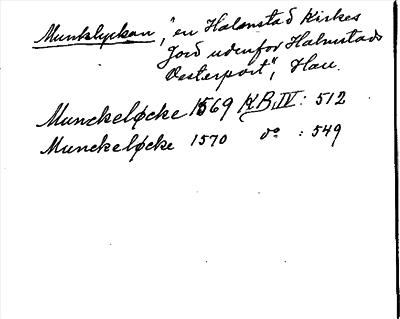 Munklyckan, "en Halmstad Kirkes
Jord udenfor Halmstads
Oesterport", Hau.
Munckeløcke 1569 KB.IV: 512
Munckeløcke 1570 do : 549